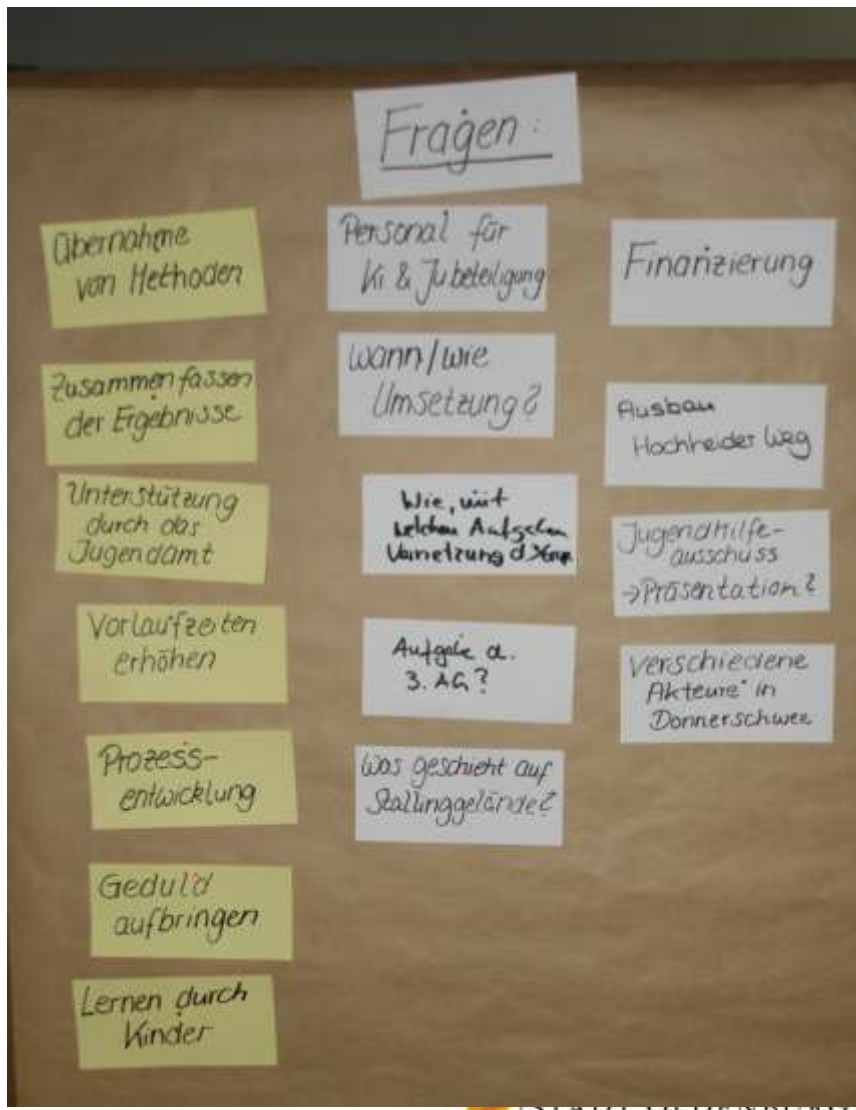 Fragen:
Übernahme
von Methoden
Zusammenfassen
der Ergebnisse
Unterstützung
durch das
Jugendamt
Vorlaufzeiten
erhöhen
Prozess-
entwicklung
Geduld
aufbringen
Lernen durch
Kinder
Personal für
Ki & Jubeteiligung
Wann/wie
Umsetzung?
Wie, mit
welchen Aufgaben
Vernetzung d.
Aufgabe d.
3. AG?
Was geschieht auf
Stallinggelände?
Finanzierung
Ausbau
Hochheider Weg
Jugendhilfe-
ausschuss
→Präsentation?
Verschiedene
Akteure in
Donnerschwee